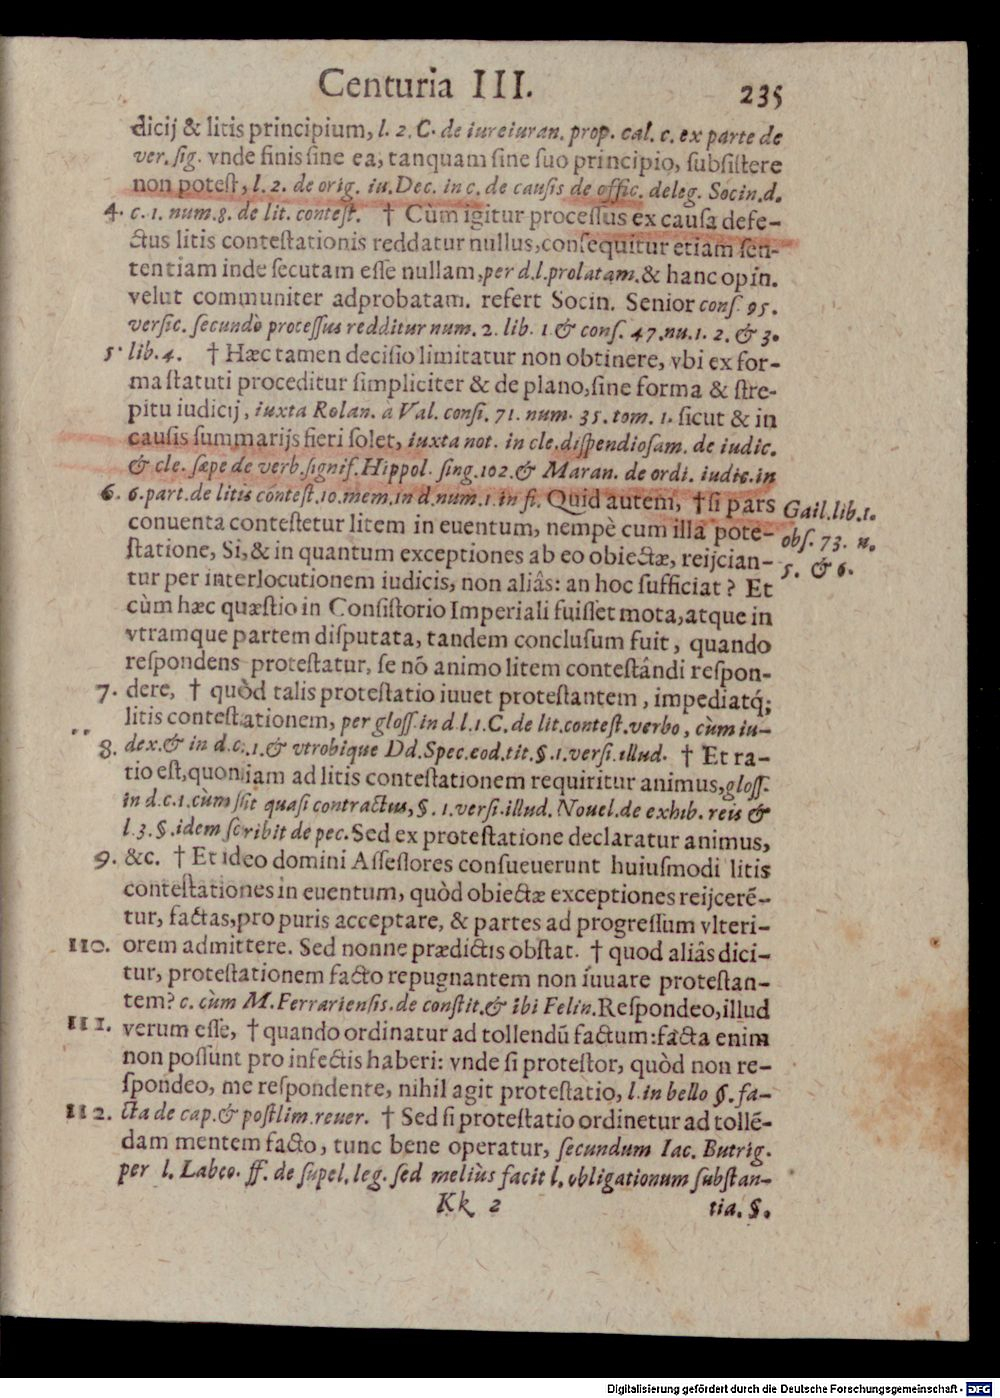 Centuria III. 235
dicij & litis principium, l. 2. C. de iureiuran. prop. cal. c. ex parte de
ver. sig. vnde finis sine ea, tanquam sine suo principio, subsistere
non potest, l. 2. de orig. iu. Dec. in c. de causis de offic. deleg. Socin. d.
4. c. 1. num. 8. de lit. contest. † Cùm igitur processus ex causa defe-
ctus litis contestationis reddatur nullus, consequitur etiam sen-
tentiam inde secutam esse nullam, per d. l. prolatam. & hanc opin.
velut communiter adprobatam. refert Socin. Senior cons. 95.
versic. secundò processus redditur num. 2. lib. 1 & cons. 47. nu. 1. 2. & 3.
5. lib. 4. † Hæc tamen decisio limitatur non obtinere, vbi ex for-
ma statuti proceditur simpliciter & de plano, sine forma & stre-
pitu iudicij, iuxta Rolan. à Val. consi. 71. num. 35. tom. 1. sicut & in
causis summarijs fieri solet, iuxta not. in cle. dispendiosam. de iudic.
& cle. sæpe de verb. signif. Hippol. sing. 102. & Maran. de ordi. iudic. in
6. 6. part. de litis contest. 10. mem. in d. num. 1. in fi. Quid autem, † si pars
conuenta contestetur litem in euentum, nempè cum illa pote-
statione, Si, & in quantum exceptiones ab eo obiectæ, reijcian-
tur per interlocutionem iudicis, non aliâs: an hoc sufficiat? Et
cùm hæc quæstio in Consistorio Imperiali fuisset mota, atque in
vtramque partem disputata, tandem conclusum fuit, quando
respondens protestatur, se nō animo litem contestândi respon-
7. dere, † quòd talis protestatio iuuet protestantem, impediatq́;
litis contestationem, per gloss. in d. l. 1. C. de lit. contest. verbo, cùm iu-
8. dex. & in d. c. 1. & vtrobique Dd. Spec. eod. tit. §. 1. versi. illud. † Et ra-
tio est, quoniam ad litis contestationem requiritur animus, gloss.
in d. c. 1. cùm sit quasi contractus, §. 1. versi. illud. Nouel. de exhib. reis &
l. 3. §. idem scribit de pec. Sed ex protestatione declaratur animus,
9. &c. † Et ideo domini Assessores consueuerunt huiusmodi litis
contestationes in euentum, quòd obiectæ exceptiones reijcerē-
tur, factas, pro puris acceptare, & partes ad progressum vlteri-
110. orem admittere. Sed nonne prædictis obstat. † quod aliâs dici-
tur, protestationem facto repugnantem non iuuare protestan-
tem? c. cùm M. Ferrariensis. de constit. & ibi Felin. Respondeo, illud
111. verum esse, † quando ordinatur ad tollendū factum: facta enim
non possunt pro infectis haberi: vnde si protestor, quòd non re-
spondeo, me respondente, nihil agit protestatio, l. in bello §. fa-
112. cta de cap. & postlim. reuer. † Sed si protestatio ordinetur ad tollē-
dam mentem facto, tunc bene operatur, secundum Iac. Butrig.
per l. Labeo. ff. de supel. leg. sed meliùs facit l. obligationum substan-
Kk 2 tia. §.
Gail. lib. 1.
obs. 73. n.
5. & 6.
Digitalisierung gefördert durch die Deutsche Forschungsgemeinschaft - DFG